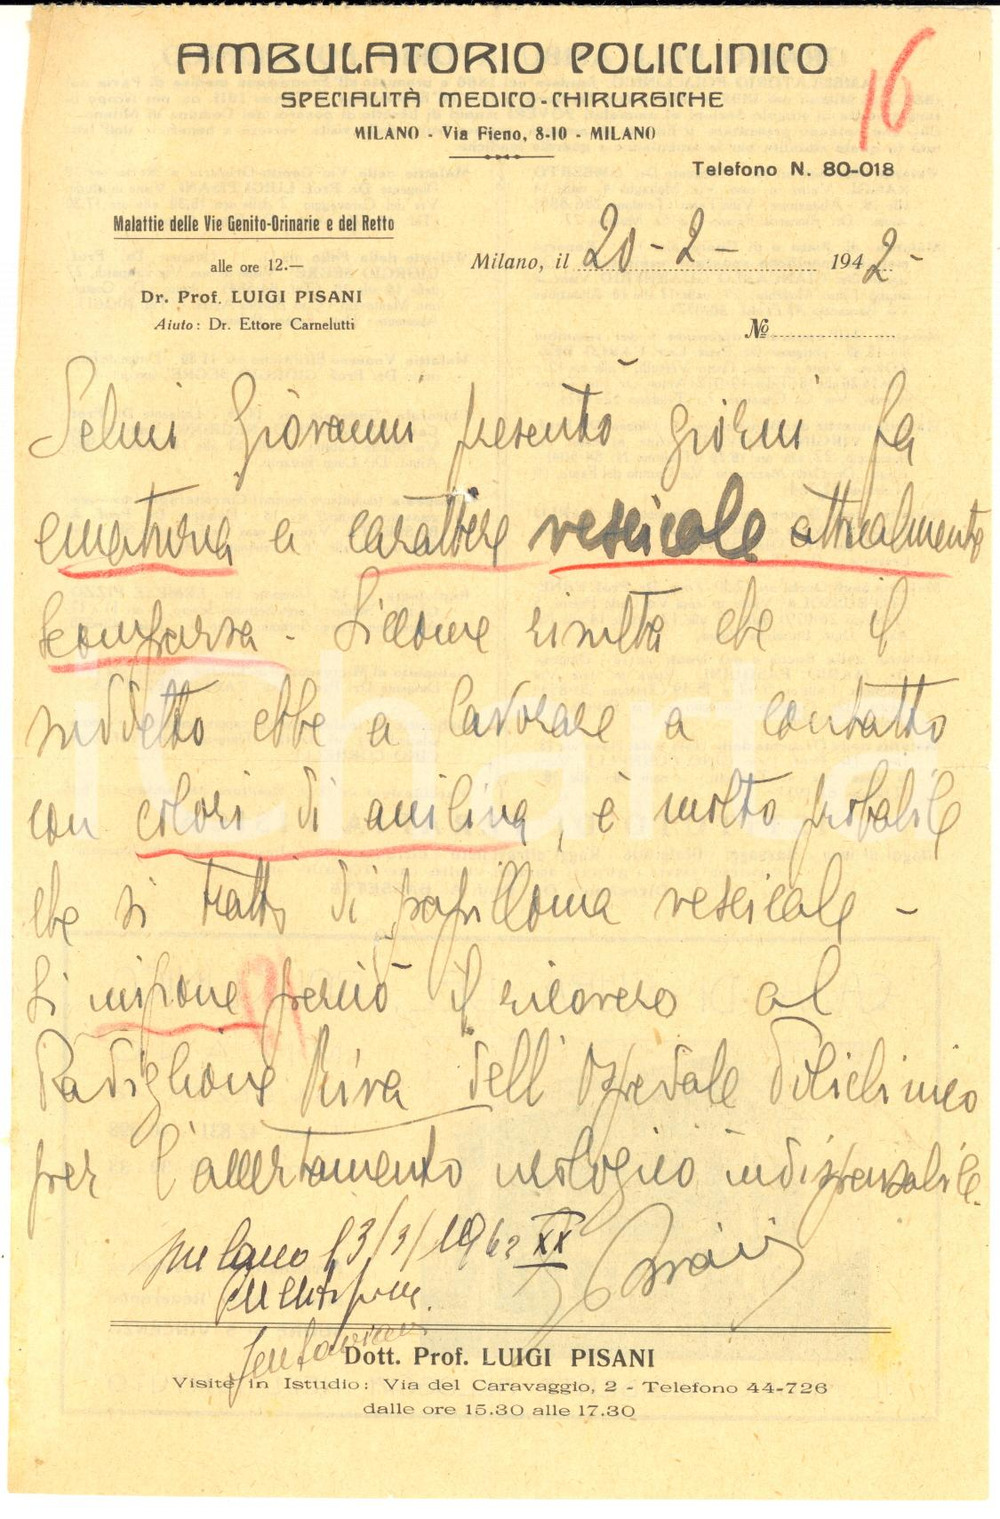 AMBULATORIO POLICLINICO
SPECIALITÀ MEDICO-CHIRURGICHE
MILANO - Via Fieno, 8-10 - MILANO
16
Telefono N. 80-018
Malattie delle Vie Genito-Orinarie e del Retto
alle ore 12.—
Dr. Prof. LUIGI PISANI
Aiuto: Dr. Ettore Carnelutti
Milano, il 20-2- 1942-
No
Selmi Giovanni presentò giorni fa
ematuria a carattere vescicale attualmente
scomparsa - Siccome risulta che il
suddetto ebbe a lavorare a contatto
con colori di anilina, è molto probabile
che si tratti di papilloma vescicale -
Si impone perciò il ricovero al
Padiglione Riva dell'Ospedale Policlinico
per l'accertamento urologico indispensabile.
Milano 13/3/1942 XX
Dott. Prof. LUIGI PISANI
Visite in Istudio: Via del Caravaggio, 2 - Telefono 44-726
dalle ore 15.30 alle 17.30